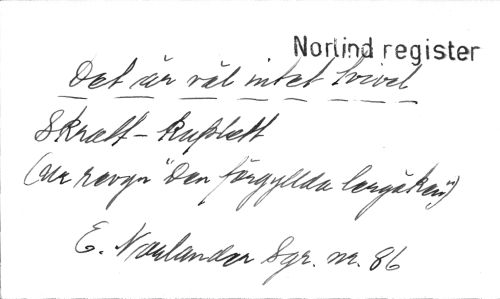 Norlind register
Det är väl intet tvivel
Skratt-kuplett
(ur revyn "Den förgyllda lergöken")
E. Norlander Sgr. nr. 86